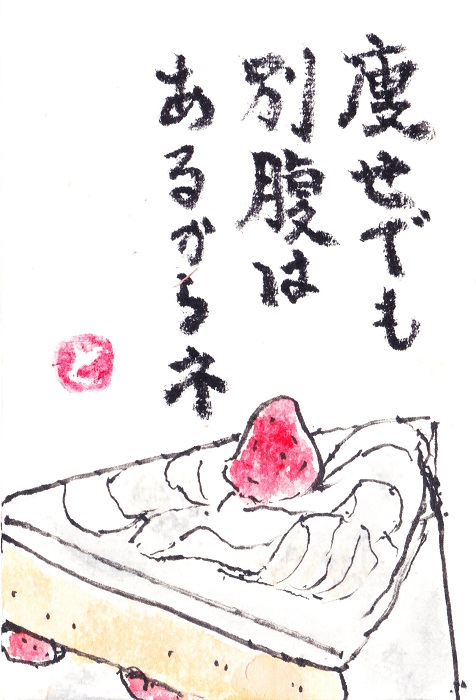 痩せでも
別腹は
あるからネ
と